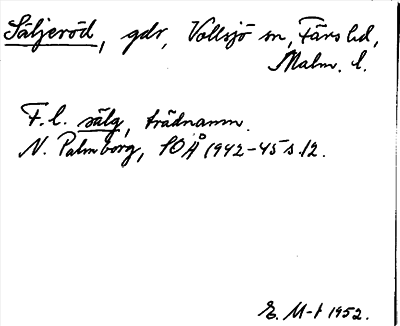 Säljeröd, gdr, Vollsjö sn, Färs hd,
Malm. l.
F.l. sälg, trädnamn.
N. Palmborg, SOÅ 1942-45 s. 12.
E. M-t 1952.